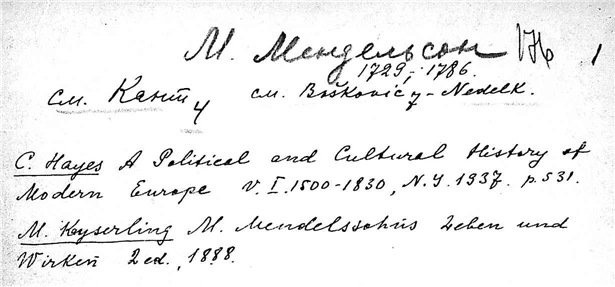 М. Мендельсон VH 1
1729-1786.
см. Кант 4 см. Boškovic 7 - Nedelk.
C. Hayes A Political and Cultural History of
Modern Europe V. I. 1500-1830, N.Y. 1937. p. 531.
M. Keyserling M. Mendelssohns Leben und
Wirken 2 ed., 1888.